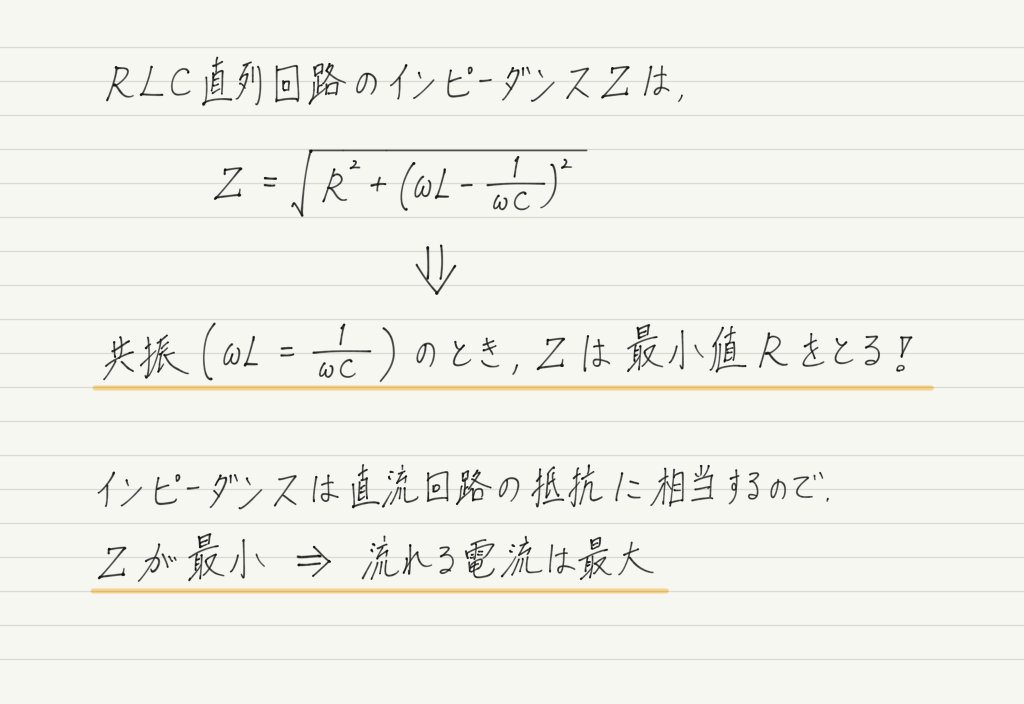 RLC直列回路のインピーダンスZは,
Z = √(R² + (ωL - 1/ωC)²)
⇓
共振 (ωL = 1/ωC) のとき, Zは最小値Rをとる!
インピーダンスは直流回路の抵抗に相当するので,
Zが最小 ⇒ 流れる電流は最大